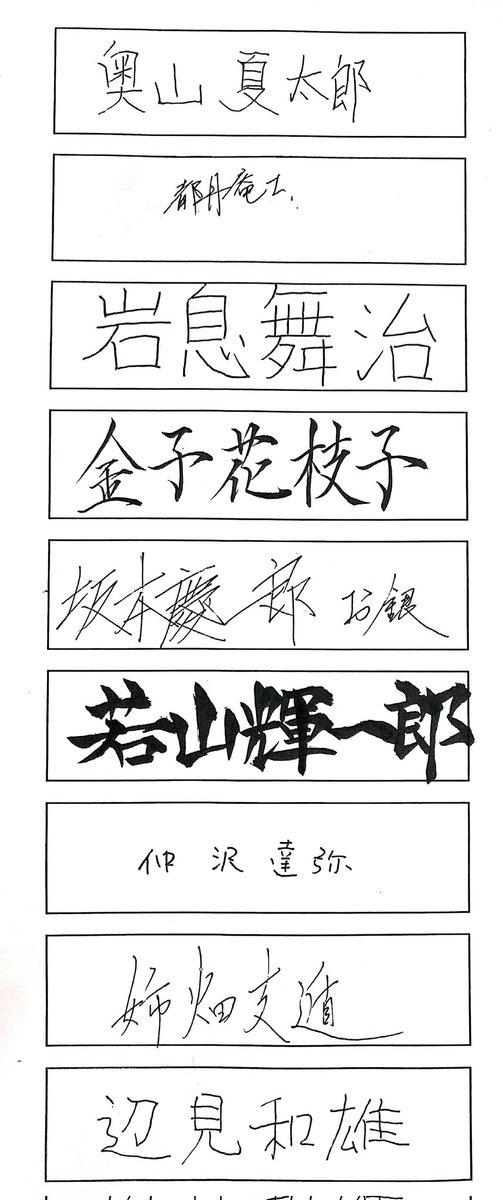 奥山夏太郎
都丹庵士
岩息舞治
金子花枝子
坂本慶一郎 お銀
若山輝一郎
仲沢達弥
姉畑支遁
辺見和雄